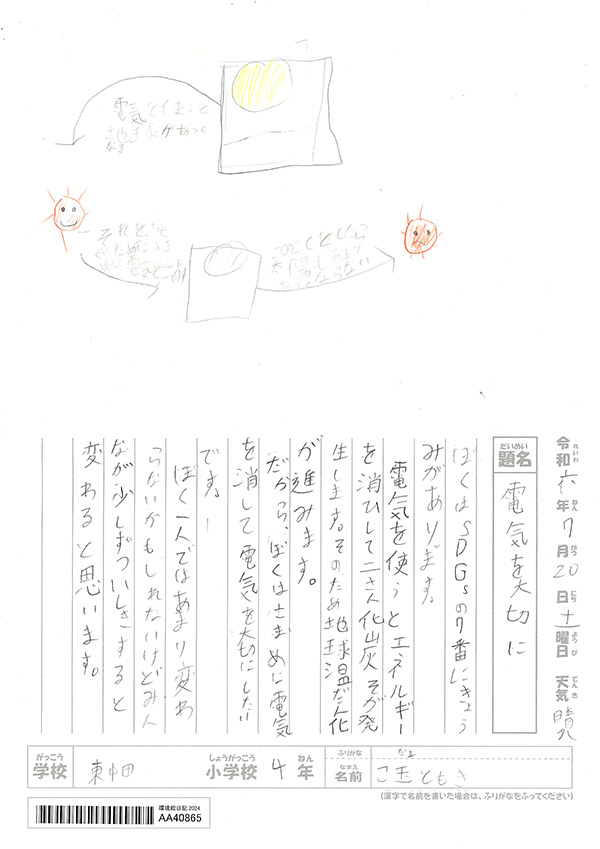 電気をつけると
地球があつく
なる
令和六年7月20日土曜日 天気晴れ
れいわ ねん がつ にち ようび てんき
だいめい
題名 電気を大切に
ぼくはSDGsの7番にきょう
みがあります。
電気を使うとエネルギー
を消ひして二さん化炭そが発
生します。そのため地球温だん化
が進みます。
だから、ぼくはこまめに電気
を消して電気を大切にしたい
です。
ぼく一人ではあまり変わ
らないかもしれないけどみん
なが少しずついしきすると
変わると思います。
がっこう しょうがっこう ねん
学校 東中田 小学校 4年
ふりがな だま
なまえ
名前 こ玉ともき
(漢字で名前を書いた場合は、ふりがなをふってください)
環境絵日記 2024
AA40865